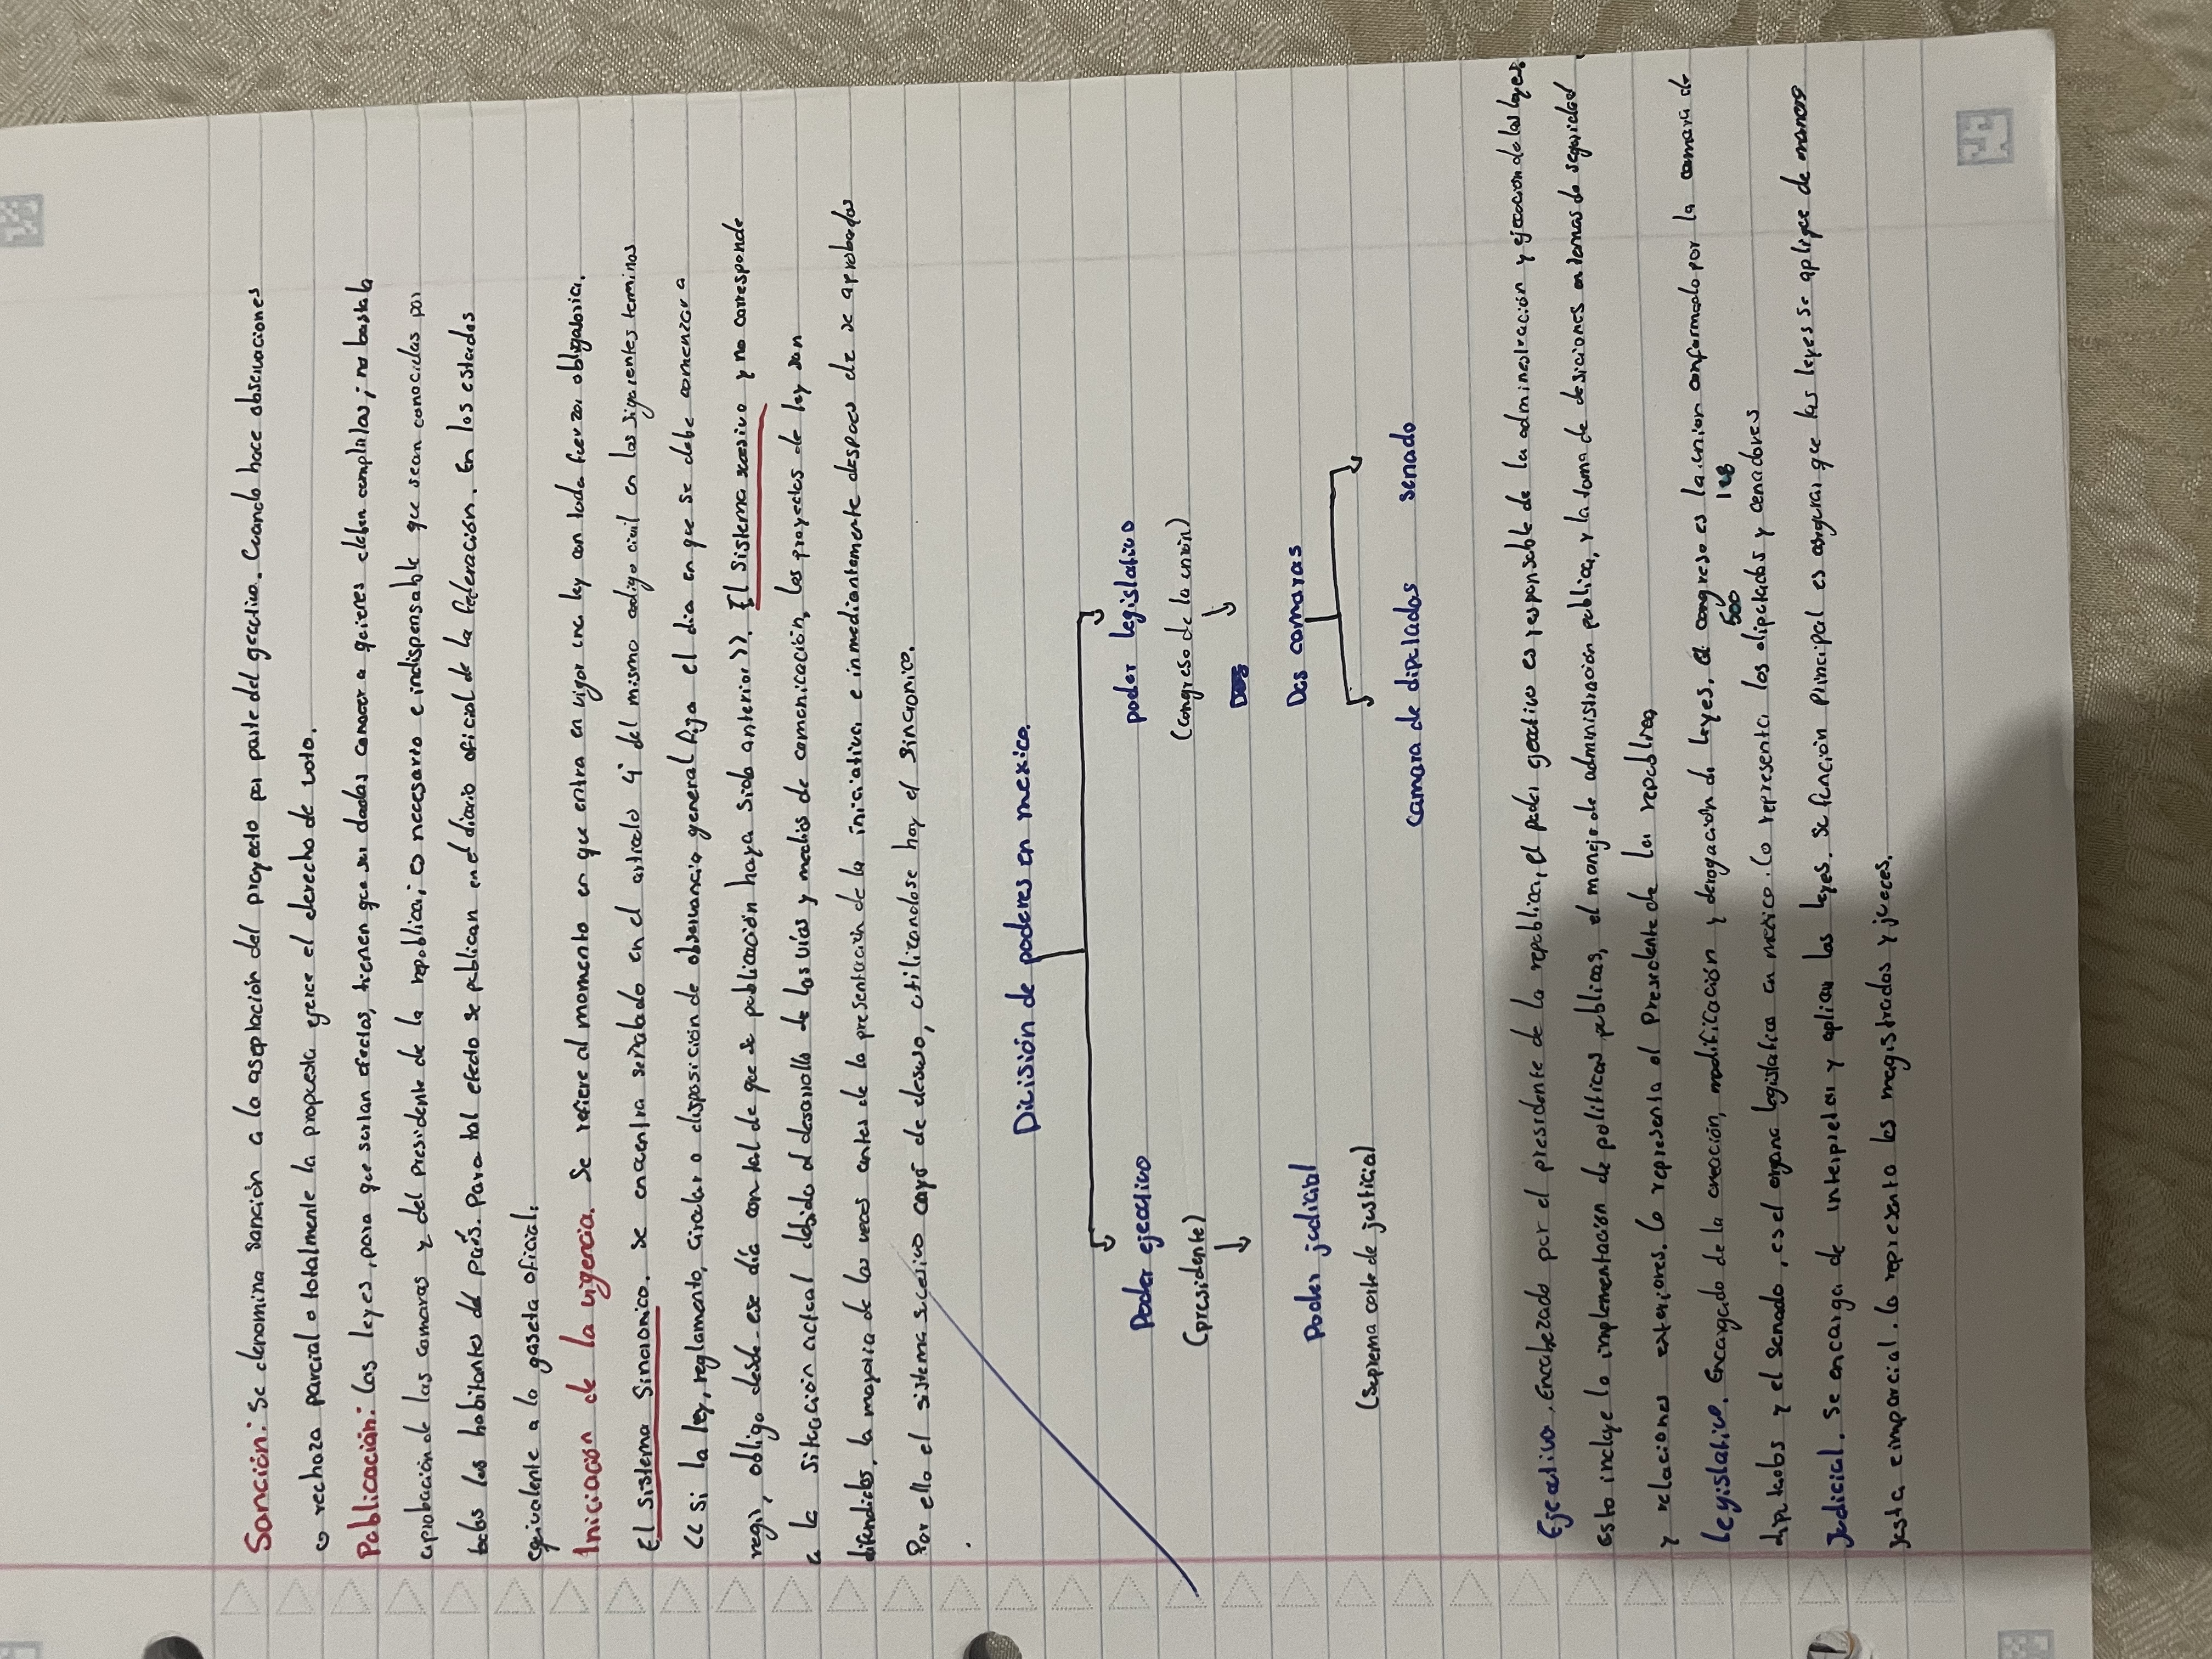 Sanción: Se denomina sanción a la aseptación del proyecto por parte del geectivo. Cuando hace observaciones
o rechaza parcial o totalmente la propuesta ejerce el derecho de voto.
Publicación: las leyes, para que surtan efectos, tienen que ser dadas conocer a quienes deben cumplirlas; no bastab
aprobación de las camaras y del presidente de la republica; o necesario e indispensable que sean conocidas por
todos los habitantes del país. Para tal efecto se publican en el diario oficial de la federación. En los estados
equivalente a la gaseta oficial.
Iniciación de la vigencia. Se refiere al momento en que entra en vigor una ley con toda fuerza obligatoria.
El sistema Sincronico. se encuentra señalado en el articulo 4° del mismo codigo civil en los siguientes terminos
<< si la ley, reglamento, circular o disposición de observancia general fija el dia en que se debe comenzar a
regir, obliga desde ese día con tal de que su publicación haya sido anterior >>. El sistema sucesivo y no corresponde
a la situación actual debido al desarrollo de las vías y medios de comunicación, los proyectos de ley son
difundidos, la mayoria de las veces antes de la presentación de la iniciativa e inmediantamente despues de se aprobados
Por ello el sistema sucesivo cayó de desuso, utilizandose hoy el sincronico.
Dicisión de poderes en mexico.
Poder ejecutivo poder legislativo
(presidente) (congreso de la unión)
Poder judicial Dos camaras
(suprema corte de justicia)
camara de diputados senado
Ejecutivo. Encabezado por el presidente de la republica, el poder ejecutivo es responsable de la administración y ejecución de las leyes.
Esto incluye la implementación de politicas publicas, el manejo de administración publica, y la toma de desiciones en temas de seguridad
y relaciones exteriores. lo representa el Presidente de la republica
Legislativo. Encargado de la creación, modificación y derogación de leyes. el congreso es la union conformado por la camara de
500 128
diputados y el senado, es el organo legislativo en mexico. lo representa los diputados y cenadores
Judicial. Se encarga de interpretar y aplicar las leyes. su función principal es asegurar que las leyes se aplique de manera
justa e imparcial. lo representa los magistrados y jueces.